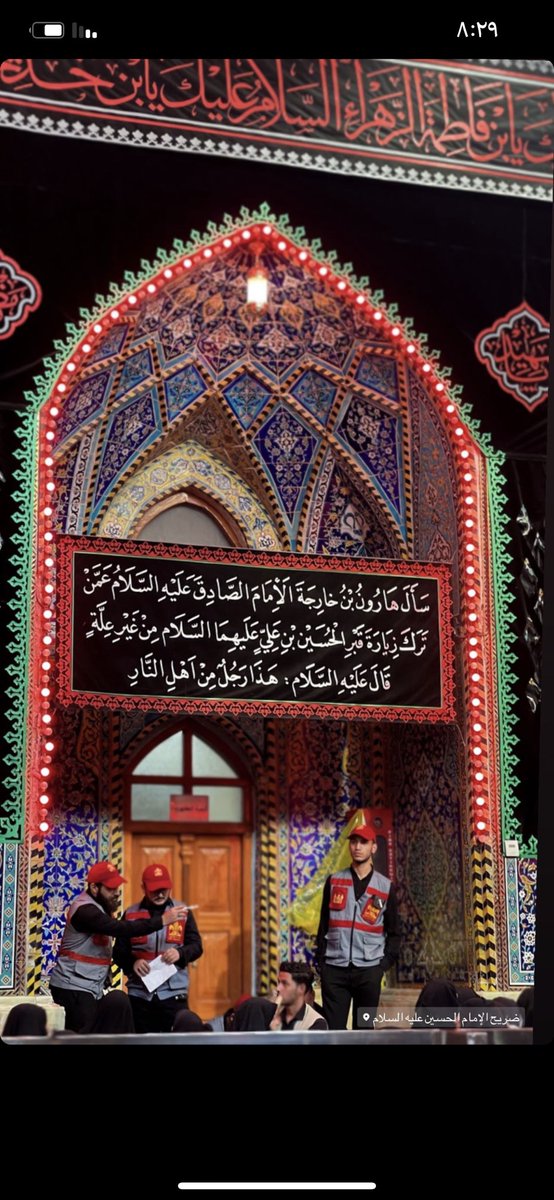 ٨:٢٩
ك يابن فاطمة الزهراء السلام عليك يابن خد
سَأَلَ هَارُونُ بْنُ خَارِجَةَ الْإِمَامَ الصَّادِقَ عَلَيْهِ السَّلَامُ عَمَّنْ
تَرَكَ زِيَارَةَ قَبْرِ الْحُسَيْنِ بْنِ عَلِيٍّ عَلَيْهِمَا السَّلَام مِنْ غَيْرِ عِلَّةٍ
قَالَ عَلَيْهِ السَّلَام: هَذَا رَجُلٌ مِنْ اَهْلِ النَّارِ
ضريح الإمام الحسين عليه السلام